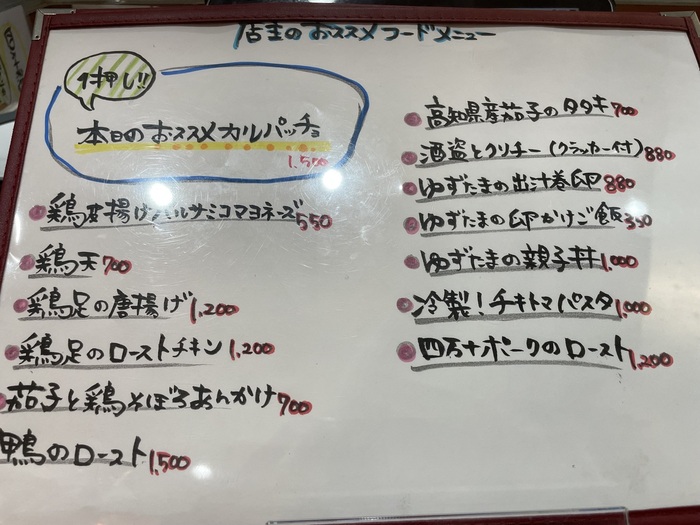 店主のおススメフードメニュー
1押し!!
本日のおススメカルパッチョ
1,500
鶏皮揚げバルサミコマヨネーズ 550
鶏天 700
鶏足の唐揚げ 1,200
鶏足のローストチキン 1,200
茄子と鶏そぼろあんかけ 700
鴨のロースト 1,500
高知県産茄子のタタキ 700
酒盗とクリチー(クラッカー付) 880
ゆずたまの出汁巻卵 880
ゆずたまの卵かけご飯 350
ゆずたまの親子丼 1,000
冷製!チキトマパスタ 1,000
四万十ポークのロースト 1,200